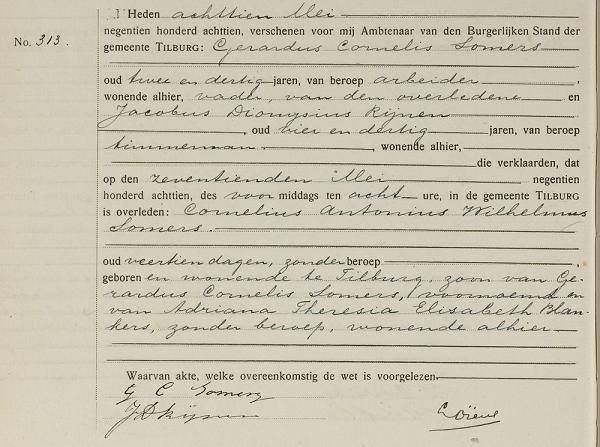 Heden achttien Mei
No. 313.
negentien honderd achttien, verschenen voor mij Ambtenaar van den Burgerlijken Stand der
gemeente TILBURG: Gerardus Cornelis Somers
oud twee en dertig jaren, van beroep arbeider,
wonende alhier, vader, van den overledene en
Jacobus Dionysius Rijnen
, oud vier en dertig jaren, van beroep
timmerman, wonende alhier,
die verklaarden, dat
op den zeventienden Mei negentien
honderd achttien, des voormiddags ten acht ure, in de gemeente TILBURG
is overleden: Cornelius Antonius Wilhelmus
Somers.
oud veertien dagen, zonder beroep,
geboren en wonende te Tilburg, zoon van Ge-
rardus Cornelis Somers, voornoemd en
van Adriana Theresia Elisabeth Blan-
kers, zonder beroep, wonende alhier
Waarvan akte, welke overeenkomstig de wet is voorgelezen.
G C Somers
J D Rijnen